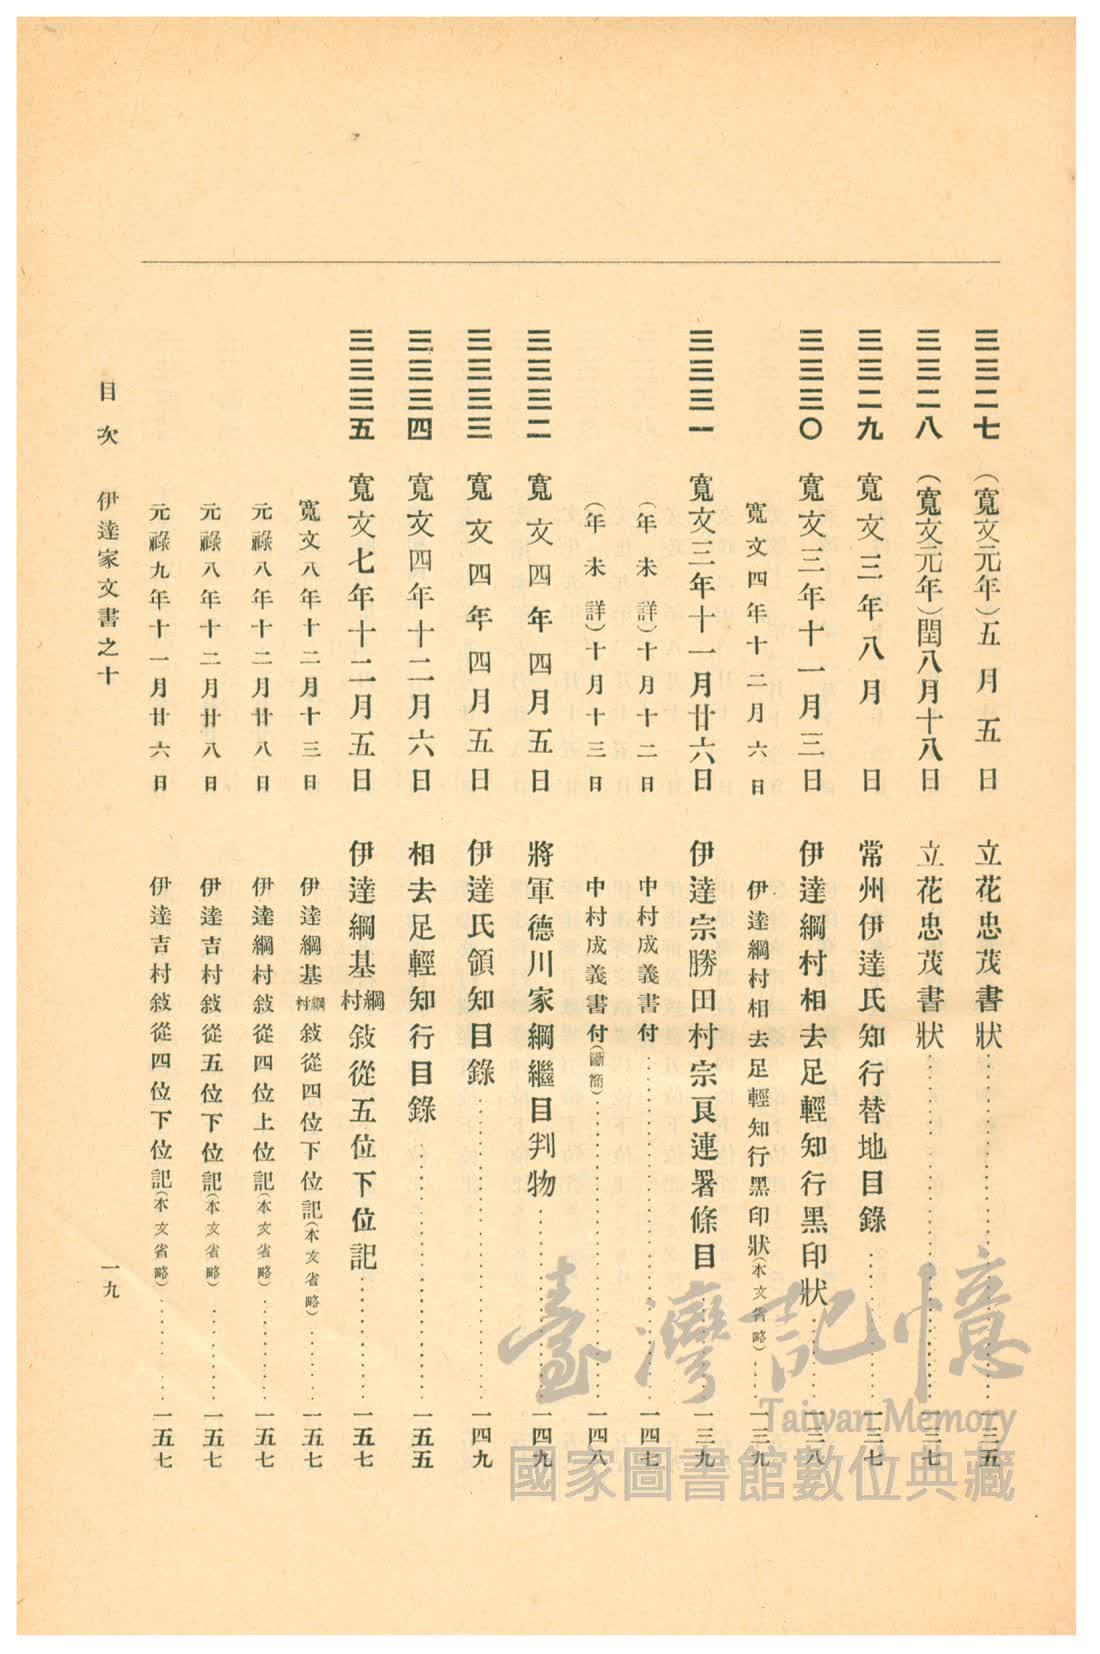 三三二七 (寬文元年)五月五日 立花忠茂書狀……一三五
三三二八 (寬文元年)閏八月十八日 立花忠茂書狀……一三七
三三二九 寬文三年八月 日 常州伊達氏知行替地目錄……一三七
三三三〇 寬文三年十一月三日 伊達綱村相去足輕知行黑印狀……一三八
寬文四年十二月六日 伊達綱村相去足輕知行黑印狀(本文省略)……一三九
三三三一 寬文三年十一月廿六日 伊達宗勝田村宗良連署條目……一三九
(年未詳)十月十二日 中村成義書付……一四七
(年未詳)十月十三日 中村成義書付(斷簡)……一四八
三三三二 寬文四年四月五日 將軍德川家綱繼目判物……一四九
三三三三 寬文四年四月五日 伊達氏領知目錄……一四九
三三三四 寬文四年十二月六日 相去足輕知行目錄……一五五
三三三五 寬文七年十二月五日 伊達綱基綱村敍從五位下位記……一五七
寬文八年十二月十三日 伊達綱基綱村敍從四位下位記(本文省略)……一五七
元祿八年十二月廿八日 伊達綱村敍從四位上位記(本文省略)……一五七
元祿八年十二月廿八日 伊達吉村敍從五位下位記(本文省略)……一五七
元祿九年十一月廿六日 伊達吉村敍從四位下位記(本文省略)……一五七
目次 伊達家文書之十 一九
臺灣記憶
Taiwan Memory
國家圖書館數位典藏